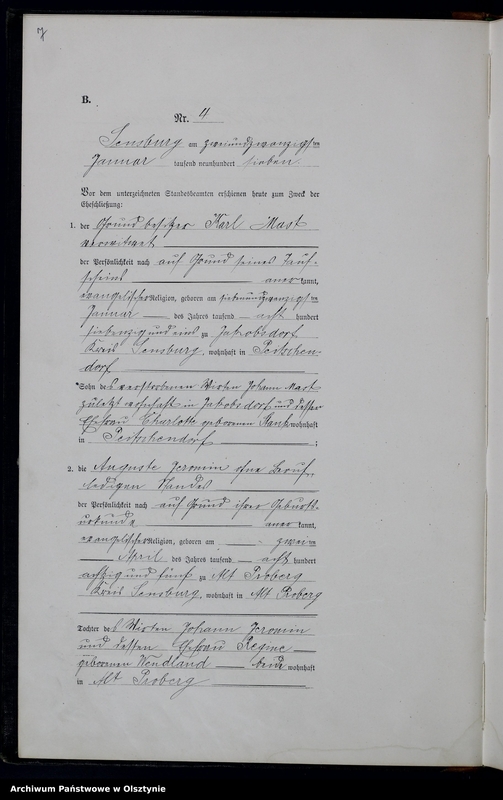 7
B.
Nr. 4
Sensburg am zweiundzwanzigsten
Januar tausend neunhundert sieben
Vor dem unterzeichneten Standesbeamten erschienen heute zum Zweck der
Eheschließung:
1. der Grundbesitzer Karl Mast
verwitwet
der Persönlichkeit nach auf Grund seines Tauf-
scheins aner kannt,
evangelischer Religion, geboren am siebenundzwanzigsten
Januar des Jahres tausend acht hundert
siebenzig und eins zu Jakobsdorf
Kreis Sensburg, wohnhaft in Peitschen-
dorf
Sohn des verstorbenen Wirten Johann Mast
zuletzt wohnhaft in Jakobsdorf und dessen
Ehefrau Charlotte geborenen wohnhaft
in Peitschendorf ;
2. die Auguste Jeromin ohne Beruf,
ledigen Standes
der Persönlichkeit nach auf Grund ihrer Geburts-
urkunde aner kannt,
evangelischer Religion, geboren am zweiten
April des Jahres tausend acht hundert
achtzig und fünf zu Alt Proberg
Kreis Sensburg, wohnhaft in Alt Proberg
Tochter des Wirten Johann Jeromin
und dessen Ehefrau Regine
geborenen Wendland beide wohnhaft
in Alt Proberg
Archiwum Państwowe w Olsztynie